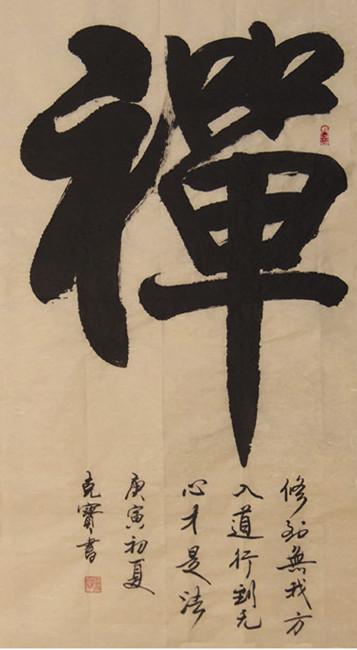 禪
修到無我方
入道行到无
心才是法
庚寅初夏
克寶書